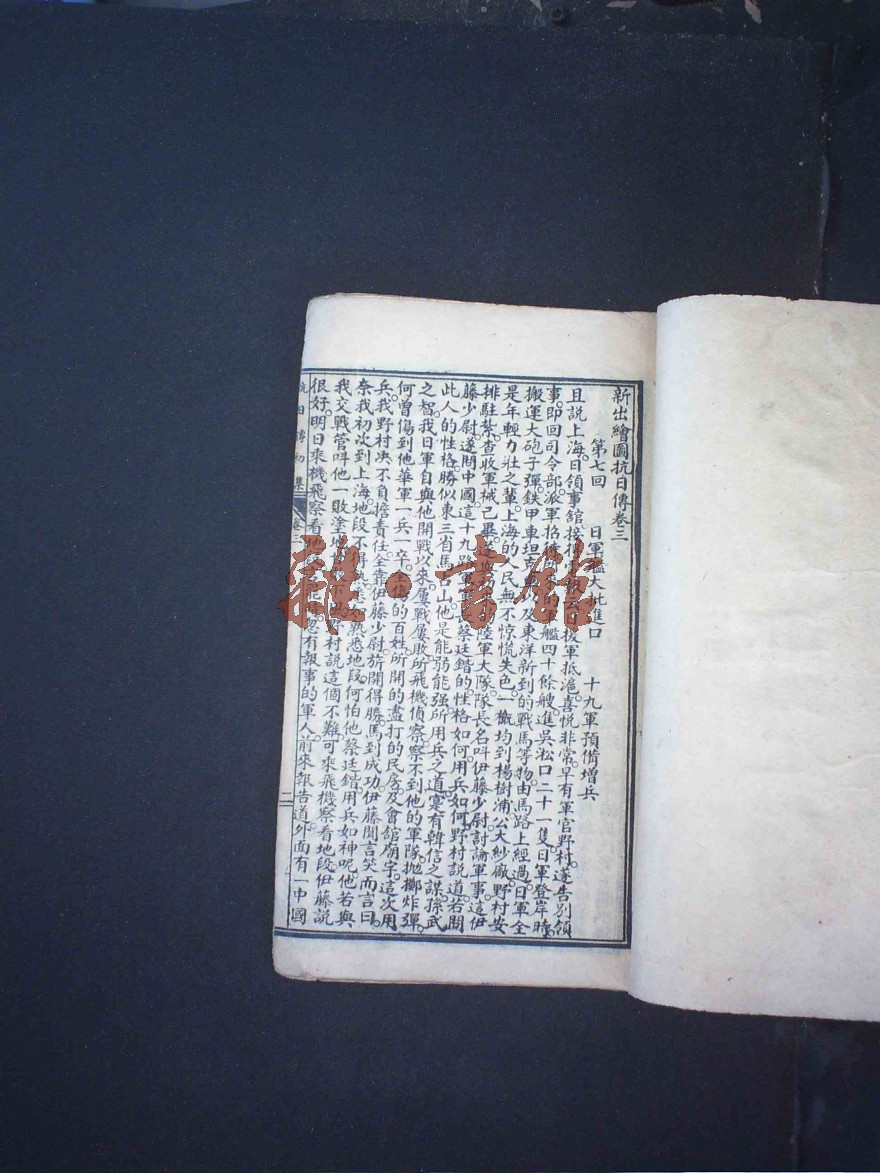 新出繪圖抗日傳卷三
第七回 日軍艦大批進口 十九軍預備增兵
且說上海日領事舘接得 援軍抵滬喜悅非常早有軍官野村遂告別領
事即回司令部派軍 艦四十餘艘進吳淞口二十一隻日軍登岸時
搬運大砲子彈鉄甲車坦 及東洋新到的戰馬等物由馬路上經過日軍全
是年輕力壯之輩上海的人民無不惊慌失色一概均到楊樹浦公大紗廠野村安
排駐紥查收軍械已畢 陸軍大隊隊長名呌伊藤少尉討論軍事這伊
藤少尉遂問中國這十九路軍 長蔡廷鍇的性格如何用兵如何野村說道若問
此人的性格勝似東三省馬占山他是能弱能强所用兵之道稟有韓信之謀孫武
之智我日軍自與他開戰以來屢戰屢敗所飛機偵察察不到他的軍隊拋擲炸彈
何曾傷到他華軍一兵一卒全傷的百姓所開的盡打的民房及會舘廟宇這次用
兵我野村决不負擔責任全靠伊藤少尉旂開得勝馬到成功伊藤聞言笑而言曰
奈我初次到上海地段不 熟悉地段何怕他蔡廷鍇用兵如神呢他若與
我交戰管呌他一敗塗地 野村說這個不難可乘飛機察看地段伊藤說
很好明日乘機飛察看地 忽有報事的軍人前來報告道外面有一中國
抗日傳初集 卷三 二
雜·書館